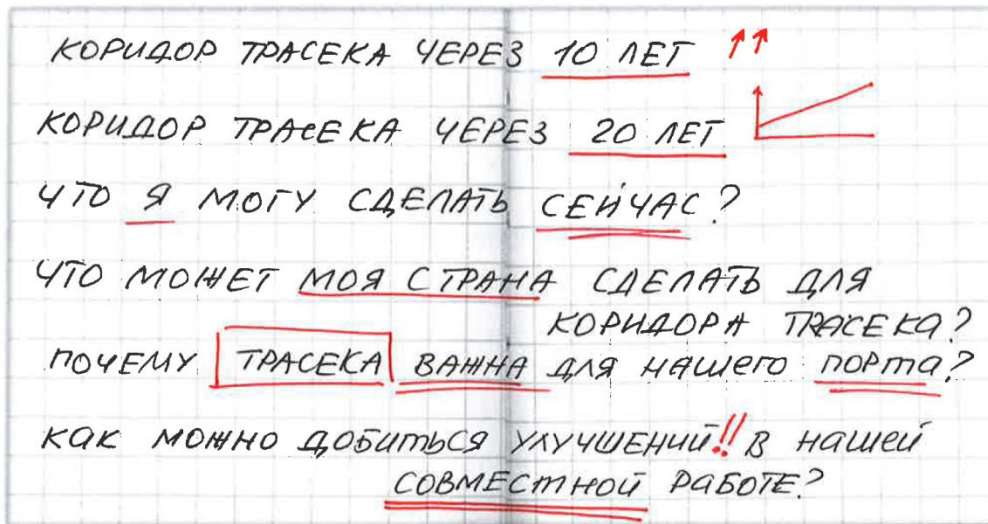 КОРИДОР ТРАСЕКА ЧЕРЕЗ 10 ЛЕТ
КОРИДОР ТРАСЕКА ЧЕРЕЗ 20 ЛЕТ
ЧТО Я МОГУ СДЕЛАТЬ СЕЙЧАС?
ЧТО МОЖЕТ МОЯ СТРАНА СДЕЛАТЬ ДЛЯ
КОРИДОРА ТРАСЕКА?
ПОЧЕМУ ТРАСЕКА ВАЖНА ДЛЯ НАШЕГО ПОРТА?
КАК МОЖНО ДОБИТЬСЯ УЛУЧШЕНИЙ!! В НАШЕЙ
СОВМЕСТНОЙ РАБОТЕ?